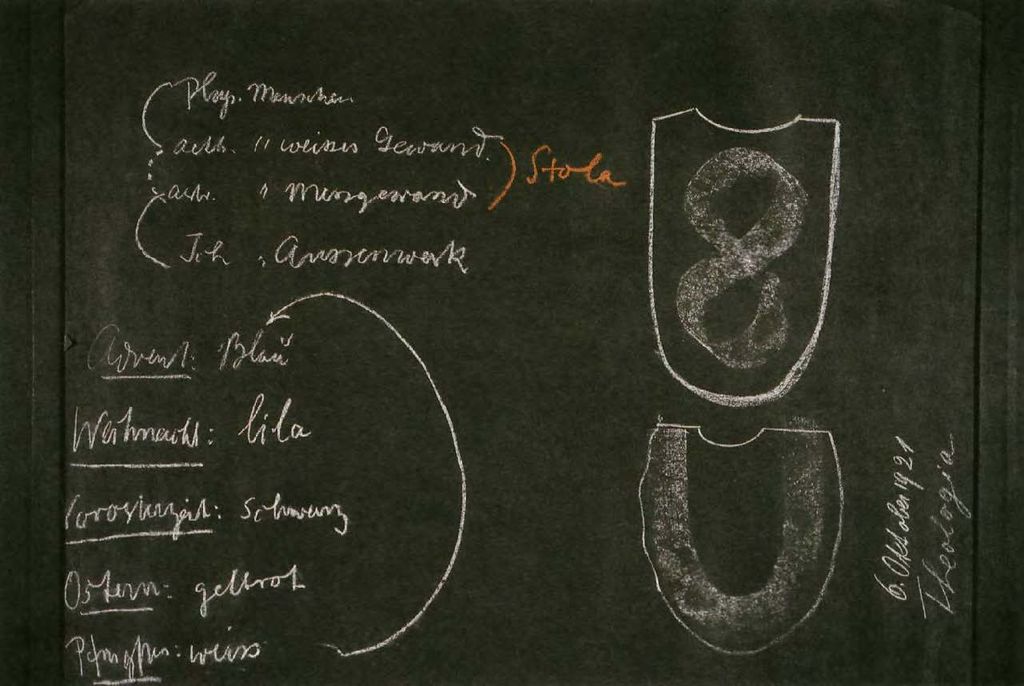 Phys. Menschen
aeth. " weisses Gewand.
astr. " Messgewand
Stola
Ich " Aussenwerk
Advent: Blau
Weihnacht: lila
Vorosterzeit: schwarz
Ostern: gelbrot
Pfingsten: weiss
6. Oktober 1921
Theologia